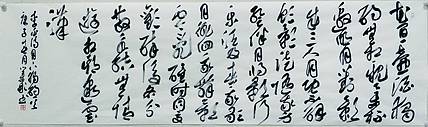 花間一壺酒獨
酌無相親舉杯
邀明月對影
成三人月既不解
飲影徒隨我身
暫伴月將影行
樂須及春我歌
月徘徊我舞影
零亂醒時同交
歡醉後各分
散永結無情
遊相期邈雲
漢
李白詩月下獨酌
庚子